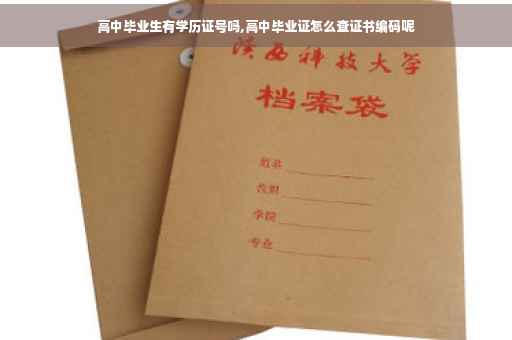 高中毕业生有学历证号吗,高中毕业证怎么查证书编码呢
陕西科技大学
档案袋
姓名
教职
学院
专业